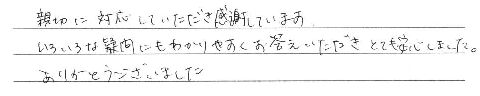 親切に対応していただき感謝しています。
いろいろな疑問にもわかりやすくお答えいただきとても安心しました。
ありがとうございました